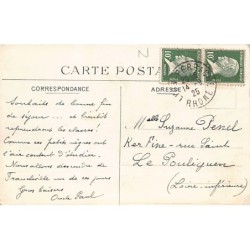 N
CARTE POSTALE
CORRESPONDANCE
ADRESSE
10
10
14
25
RHONE
Souhaits de bonne fin
de séjour ... et bientôt
reprendront les classes!
Comme ces petits singes ont
l'air content d'étudier.
Nous allons descendre de
Trouville un de ces jours
Gros baisers
Oncle Paul
Melle Suzanne Penel
Ker Fine - rue Saint
Le Pouliguen
(Loire-inférieure)